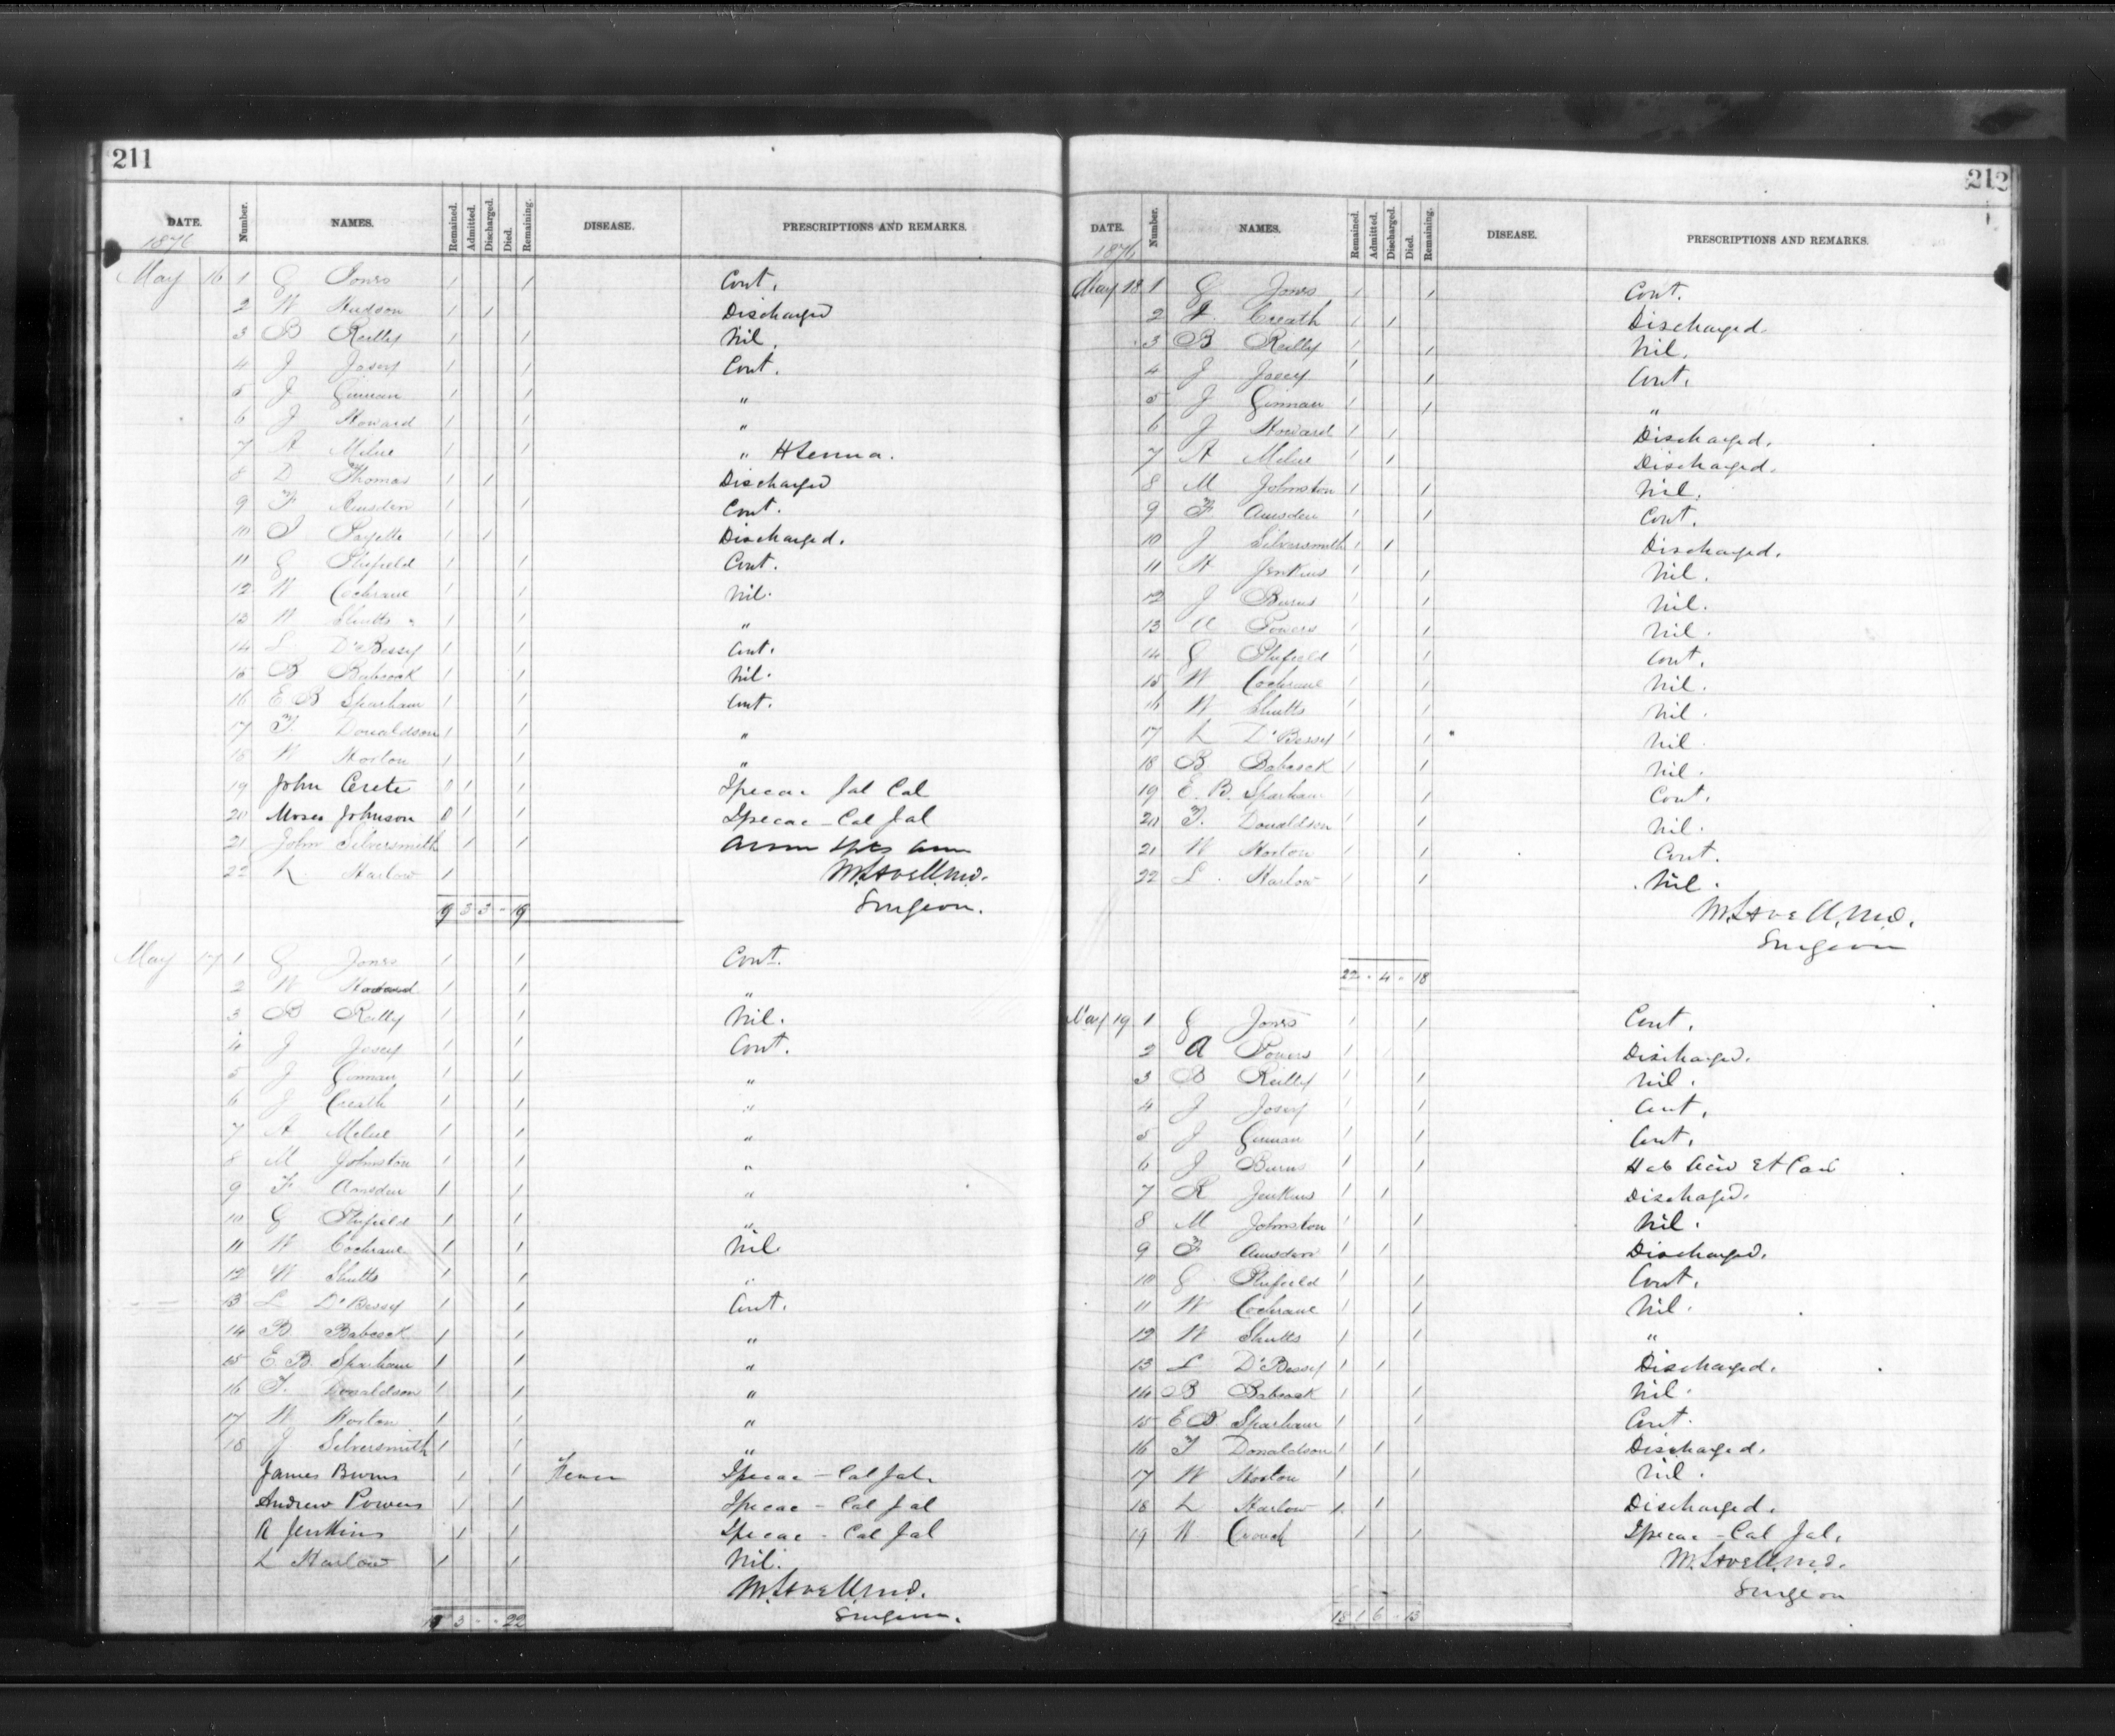 211
DATE. Number. NAMES. Remained. Admitted. Discharged. Died. Remaining. DISEASE. PRESCRIPTIONS AND REMARKS.
1876
May 16 1 G Jones 1 1 Cont.
2 W Hudson 1 1 Discharged
3 B Reilly 1 1 Nil.
4 J Josey 1 1 Cont.
5 J Ginnan 1 1 "
6 J Howard 1 1 "
7 A Milne 1 1 "
8 D Thomas 1 1 Discharged
9 F Amsden 1 1 Cont.
10 J Payette 1 1 Discharged.
11 G Shefield 1 1 Cont.
12 W Cochrane 1 1 Nil.
13 W Shutts 1 1 "
14 L D'Bessey 1 1 Cont.
15 B Babcock 1 1 Nil.
16 E B Sparham 1 1 Cont.
17 T. Donaldson 1 1 "
18 W Horton 1 1 "
19 John Crete 0 1 Ipecac Jal Cal
20 Moses Johnson 0 1 Ipecac - Cal Jal
21 John Silversmith 1
22 L Harlow 1 M. Lavell M.D.
19 3 3 - 19 Surgeon.
May 17 1 G Jones 1 1 Cont.
2 W 1 1 "
3 B Reilly 1 1 Nil.
4 J Josey 1 1 Cont.
5 J Ginnan 1 1 "
6 J Creath 1 1 "
7 A Milne 1 1 "
8 M Johnston 1 1 "
9 F Amsden 1 1 "
10 G Shefield 1 1 "
11 W Cochrane 1 1 Nil
12 W Shutts 1 1 "
13 L D'Bessey 1 1 Cont.
14 B Babcock 1 1 "
15 E. B. Sparham 1 1 "
16 T. Donaldson 1 1 "
17 W Horton 1 1 "
18 J Silversmith 1 1 "
James Burns 1 1 Fever Ipecac - Cal Jal.
Andrew Powers 1 1 Ipecac - Cal Jal
R Jenkins 1 1 Ipecac - Cal Jal
L Harlow 1 1 Nil.
M. Lavell M.D.
Surgeon.
19 3 - - 22
212
DATE. Number. NAMES. Remained. Admitted. Discharged. Died. Remaining. DISEASE. PRESCRIPTIONS AND REMARKS.
1876
May 18 1 G Jones 1 1 Cont.
2 J. Creath 1 1 Discharged.
3 B Reilly 1 1 Nil.
4 J Josey 1 1 Cont.
5 J Ginnan 1 1 "
6 J Howard 1 1 Discharged.
7 A Milne 1 1 Discharged.
8 M Johnston 1 1 Nil.
9 F Amsden 1 1 Cont.
10 J Silversmith 1 1 Discharged.
11 R Jenkins 1 1 Nil.
12 J Burns 1 1 Nil.
13 A Powers 1 1 Nil.
14 G Shefield 1 1 Cont.
15 W Cochrane 1 1 Nil.
16 W Shutts 1 1 Nil.
17 L D'Bessey 1 1 Nil
18 B Babcock 1 1 Nil.
19 E. B. Sparham 1 1 Cont.
20 T. Donaldson 1 1 Nil.
21 W Horton 1 1 Cont.
22 L. Harlow 1 1 Nil.
M. Lavell, M.D.
Surgeon
22 - 4 - 18
May 19 1 G Jones 1 1 Cont.
2 A Powers 1 Discharged.
3 B Reilly 1 1 Nil.
4 J Josey 1 1 Cont.
5 J Ginnan 1 1 Cont.
6 J Burns 1 1
7 R Jenkins 1 1 Dischaged.
8 M Johnston 1 1 Nil.
9 F Amsden 1 1 Discharged.
10 G Shefield 1 1 Cont.
11 W Cochrane 1 1 Nil.
12 W Shutts 1 1 "
13 L D'Bessey 1 1 Discharged.
14 B Babcock 1 1 Nil.
15 E B. Sparham 1 1 Cont.
16 T Donaldson 1 1 Discharged.
17 W Horton 1 1 Nil.
18 L Harlow 1 1 Discharged.
19 W Crouch 1 1 Ipecac - Cal Jal.
M. Lavell M.D.
Surgeon
18 1 6 - 13